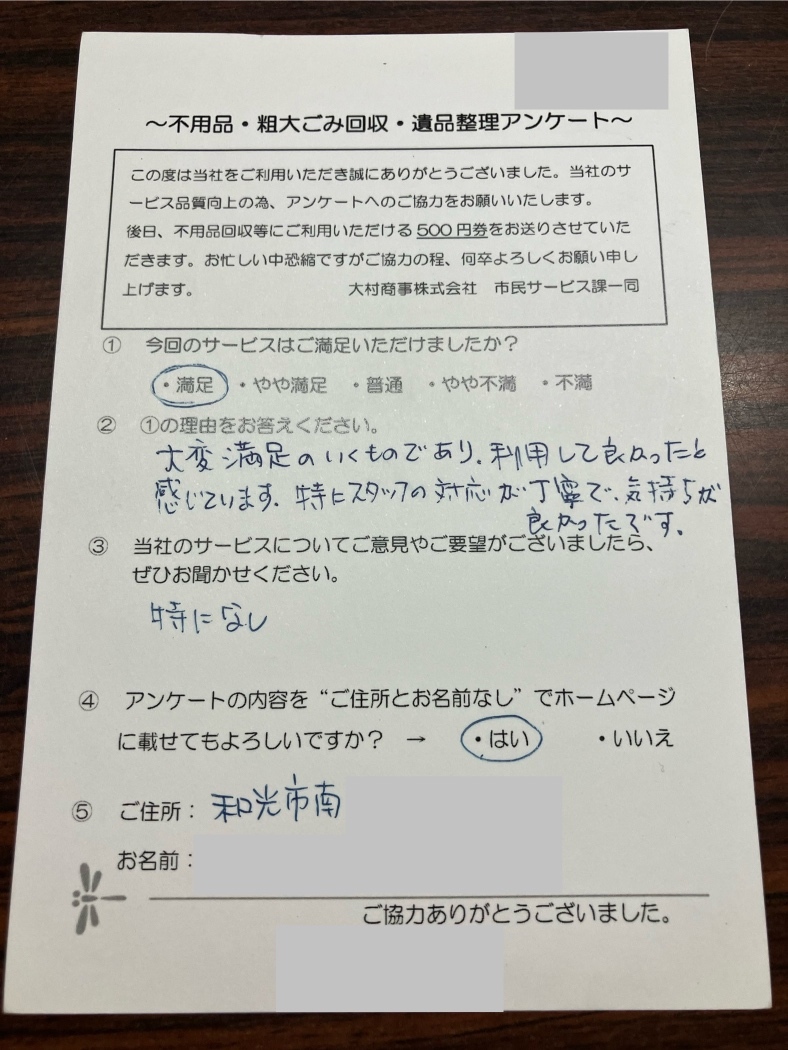 ～不用品・粗大ごみ回収・遺品整理アンケート～
この度は当社をご利用いただき誠にありがとうございました。当社のサ
ービス品質向上の為、アンケートへのご協力をお願いいたします。
後日、不用品回収等にご利用いただける500円券をお送りさせていた
だきます。お忙しい中恐縮ですがご協力の程、何卒よろしくお願い申し
上げます。　大村商事株式会社　市民サービス課一同
①　今回のサービスはご満足いただけましたか？
・満足　・やや満足　・普通　・やや不満　・不満
②　①の理由をお答えください。
大変満足のいくものであり、利用して良かったと
感じています。特にスタッフの対応が丁寧で、気持ちが
良かったです。
③　当社のサービスについてご意見やご要望がございましたら、
ぜひお聞かせください。
特になし
④　アンケートの内容を“ご住所とお名前なし”でホームページ
に載せてもよろしいですか？　→　・はい　・いいえ
⑤　ご住所：和光市南
お名前：
ご協力ありがとうございました。